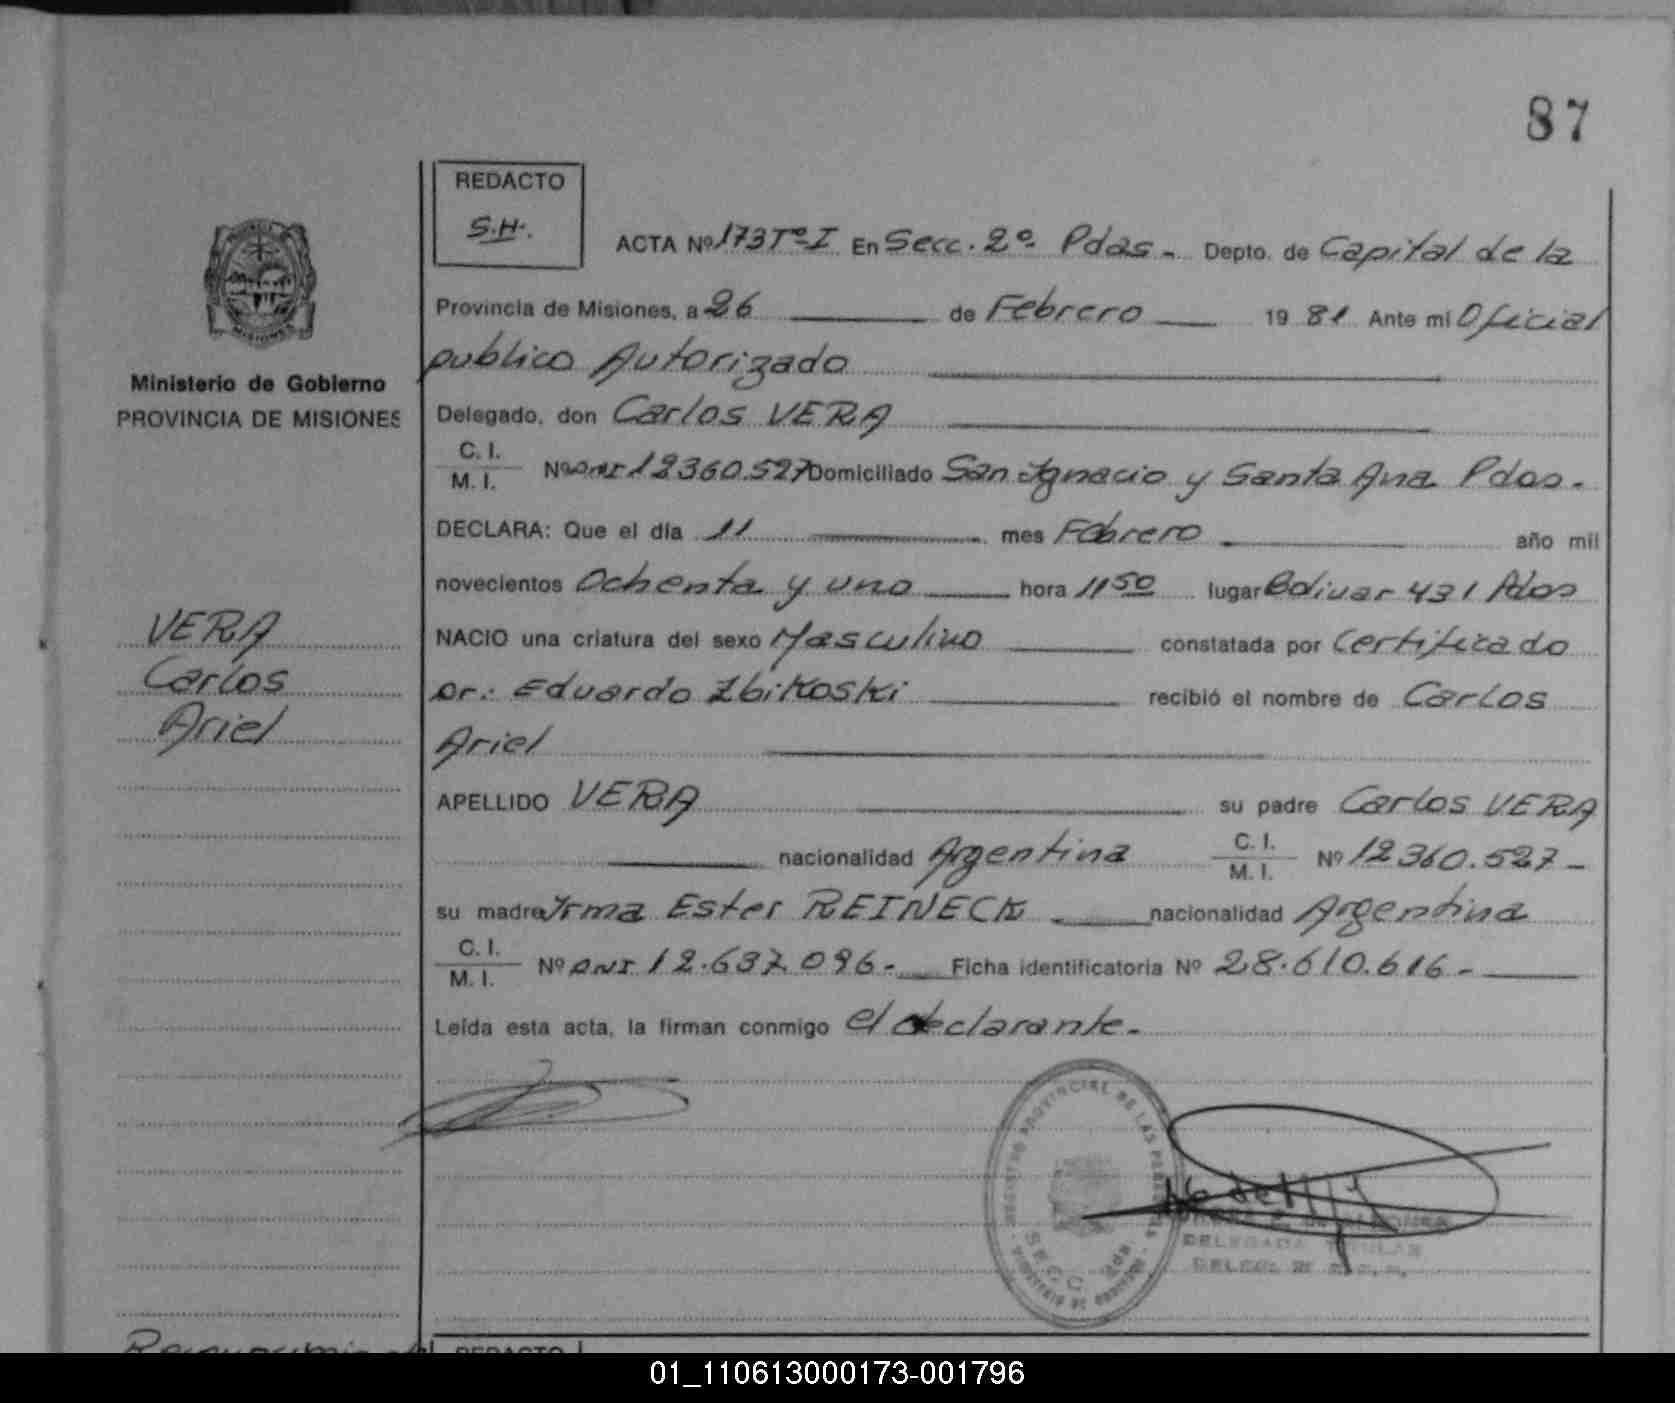 87
REDACTO
S.H.
ACTA Nº 173 Tº I En Secc. 2º Pdas - Depto. de Capital de la
Provincia de Misiones, a 26 de Febrero 19 81 Ante mi Oficial
publico Autorizado
Ministerio de Gobierno
PROVINCIA DE MISIONES
Delegado, don Carlos VERA
C. I.
M. I. Nº DNI 12360.527 Domiciliado San Ignacio y Santa Ana Pdas.
DECLARA: Que el día 11 mes Febrero año mil
novecientos Ochenta y uno hora 11 50 lugar Bolivar 431 Pdas
VERA
Carlos
Ariel
NACIO una criatura del sexo Masculino constatada por Certificado
Dr.: Eduardo Zbikoski recibió el nombre de Carlos
Ariel
APELLIDO VERA su padre Carlos VERA
nacionalidad Argentina C. I. M. I. Nº 12360.527-
su madre Irma Ester REINECK nacionalidad Argentina
C. I.
M. I. Nº DNI 12.637.096- Ficha identificatoria Nº 28.610.616-
Leída esta acta, la firman conmigo el declarante.
REGISTRO PROVINCIAL DE LAS PERSONAS
SECC. 2da
DELEGADA TITULAR
REDACTO
01_110613000173-001796